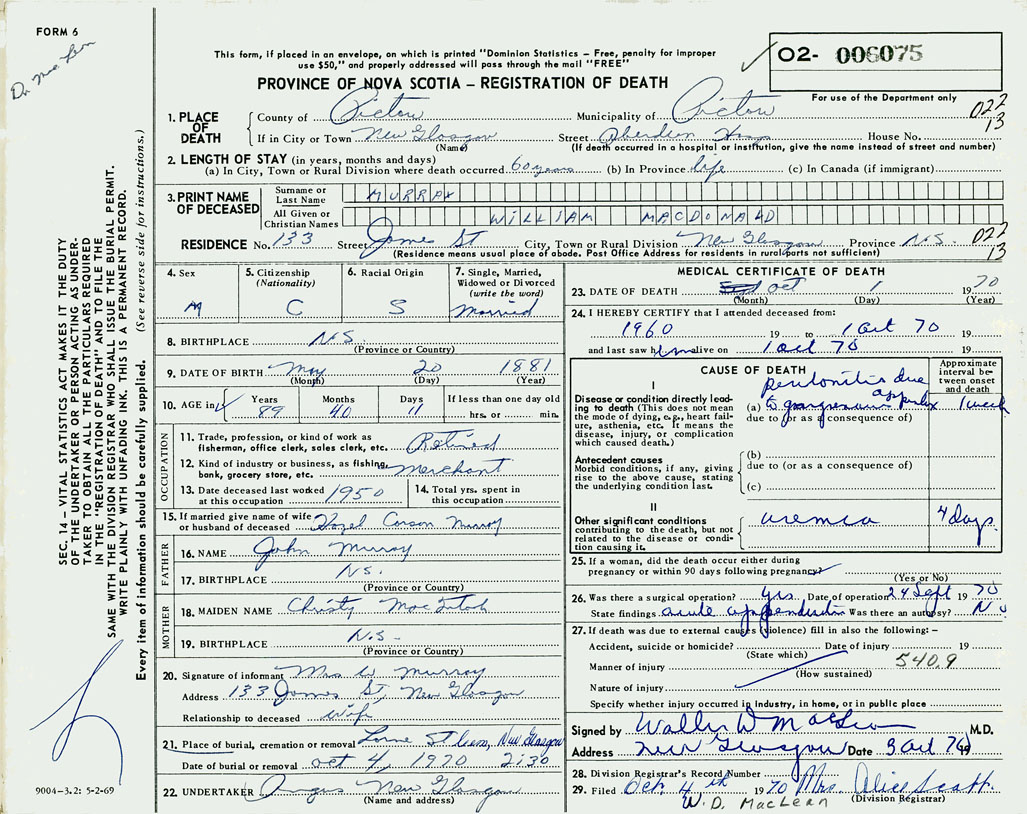 FORM 6
Dr. Mac Lean
This form, if placed in an envelope, on which is printed "Dominion Statistics – Free, penalty for improper
use $50," and properly addressed will pass through the mail "FREE"
O2- 006075
For use of the Department only
PROVINCE OF NOVA SCOTIA – REGISTRATION OF DEATH
022
13
1. PLACE OF DEATH
County of Pictou Municipality of Pictou
If in City or Town New Glasgow Street Aberdeen Hosp House No.
(Name) (If death occurred in a hospital or institution, give the name instead of street and number)
2. LENGTH OF STAY (in years, months and days)
(a) In City, Town or Rural Division where death occurred 60 years (b) In Province life (c) In Canada (if immigrant)
3. PRINT NAME OF DECEASED
Surname or Last Name MURRAY
All Given or Christian Names WILLIAM MACDONALD
RESIDENCE No. 133 Street James St City, Town or Rural Division New Glasgow Province N.S.
(Residence means usual place of abode. Post Office Address for residents in rural parts not sufficient)
022
13
4. Sex
M
5. Citizenship
(Nationality)
C
6. Racial Origin
S
7. Single, Married,
Widowed or Divorced
(write the word)
Married
8. BIRTHPLACE N.S.
(Province or Country)
9. DATE OF BIRTH May 20 1881
(Month) (Day) (Year)
10. AGE in
Years Months Days If less than one day old
89 40 11 hrs. or min.
OCCUPATION
11. Trade, profession, or kind of work as
fisherman, office clerk, sales clerk, etc. Retired
12. Kind of industry or business, as fishing,
bank, grocery store, etc. Merchant
13. Date deceased last worked
at this occupation 1950
14. Total yrs. spent in
this occupation
15. If married give name of wife
or husband of deceased Hazel Carson Murray
FATHER
16. NAME John Murray
17. BIRTHPLACE N.S.
(Province or Country)
MOTHER
18. MAIDEN NAME Christy MacIntosh
19. BIRTHPLACE N.S.
(Province or Country)
20. Signature of informant Mrs W Murray
Address 133 James St, New Glasgow
Relationship to deceased wife
21. Place of burial, cremation or removal Lorne St Cem, New Glasgow
Date of burial or removal Oct 4, 1970 2:30
22. UNDERTAKER Angus New Glasgow
(Name and address)
MEDICAL CERTIFICATE OF DEATH
23. DATE OF DEATH Oct 1 1970
(Month) (Day) (Year)
24. I HEREBY CERTIFY that I attended deceased from:
1960 19 to 1 Oct 70 19
and last saw him alive on 1 Oct 70 19
CAUSE OF DEATH
Approximate interval between onset and death
I
Disease or condition directly leading to death (This does not mean the mode of dying, e.g., heart failure, asthenia, etc. It means the disease, injury, or complication which caused death.)
peritonitis due
(a) to gangrenous appendix 1 week
due to (or as a consequence of)
Antecedent causes
Morbid conditions, if any, giving rise to the above cause, stating the underlying condition last.
(b)
due to (or as a consequence of)
(c)
II
Other significant conditions
contributing to the death, but not related to the disease or condition causing it.
uremia 4 days
25. If a woman, did the death occur either during
pregnancy or within 90 days following pregnancy?
(Yes or No)
26. Was there a surgical operation? yes Date of operation 24 Sept 1970
State findings acute appendicitis Was there an autopsy? No
27. If death was due to external causes (violence) fill in also the following: –
Accident, suicide or homicide? Date of injury 19
(State which)
Manner of injury 540.9
(How sustained)
Nature of injury
Specify whether injury occurred in industry, in home, or in public place
Signed by Walter D MacLean M.D.
Address New Glasgow Date 3 Oct 70 19
28. Division Registrar's Record Number
29. Filed Oct. 4th 1970 Mrs. Alice Scott
W. D. MacLean (Division Registrar)
SEC. 14 – VITAL STATISTICS ACT MAKES IT THE DUTY
OF THE UNDERTAKER OR PERSON ACTING AS UNDER-
TAKER TO OBTAIN ALL THE PARTICULARS REQUIRED
IN THE "REGISTRATION OF DEATH" AND TO FILE THE
SAME WITH THE DIVISION REGISTRAR WHO SHALL ISSUE THE BURIAL PERMIT.
WRITE PLAINLY WITH UNFADING INK. THIS IS A PERMANENT RECORD.
Every item of information should be carefully supplied. (See reverse side for instructions.)
9004-3.2: 5-2-69